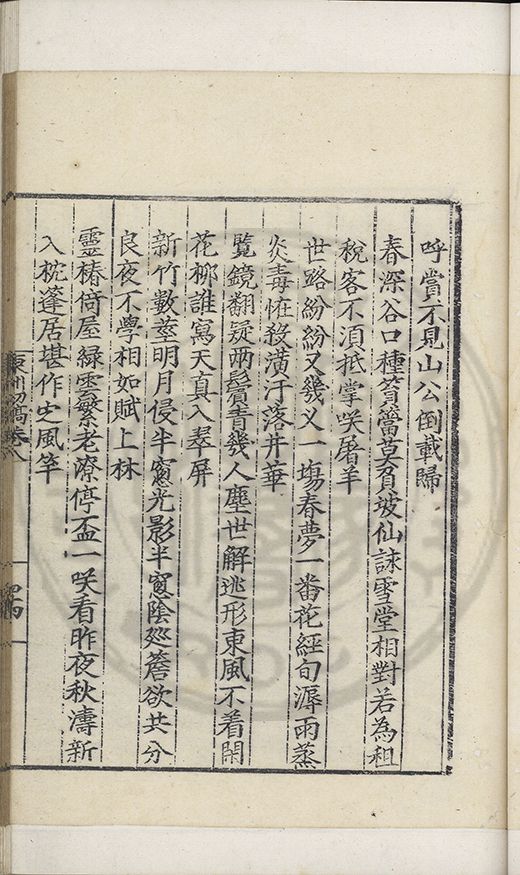 呼賞不見山公倒載歸
春深谷口種篔簹莫負坡仙詠雪堂相對若為租
稅客不須抵掌咲屠羊
世路紛紛又幾乂一塲春夢一番花經旬溽雨蒸
炎毒恠殺潢汙落井華
覧鏡翻疑兩鬢青幾人塵世解逃形東風不着閑
花柳誰寫天真入翠屏
新竹數莖明月侵半窓光影半窓陰廵簷欲共分
良夜不學相如賦上林
靈椿倚屋緑雲繁老潦停盃一咲看昨夜秋濤新
入枕篷居堪作史風竿
東川初稿卷八